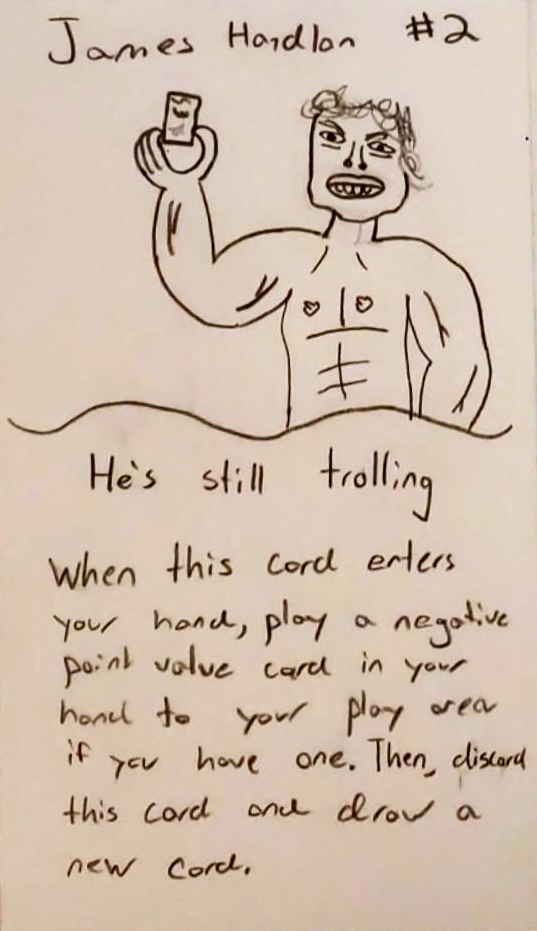 James Hardlon #2
He's still trolling
When this card enters
your hand, play a negative
point value card in your
hand to your play area
if you have one. Then, discard
this card and draw a
new card.